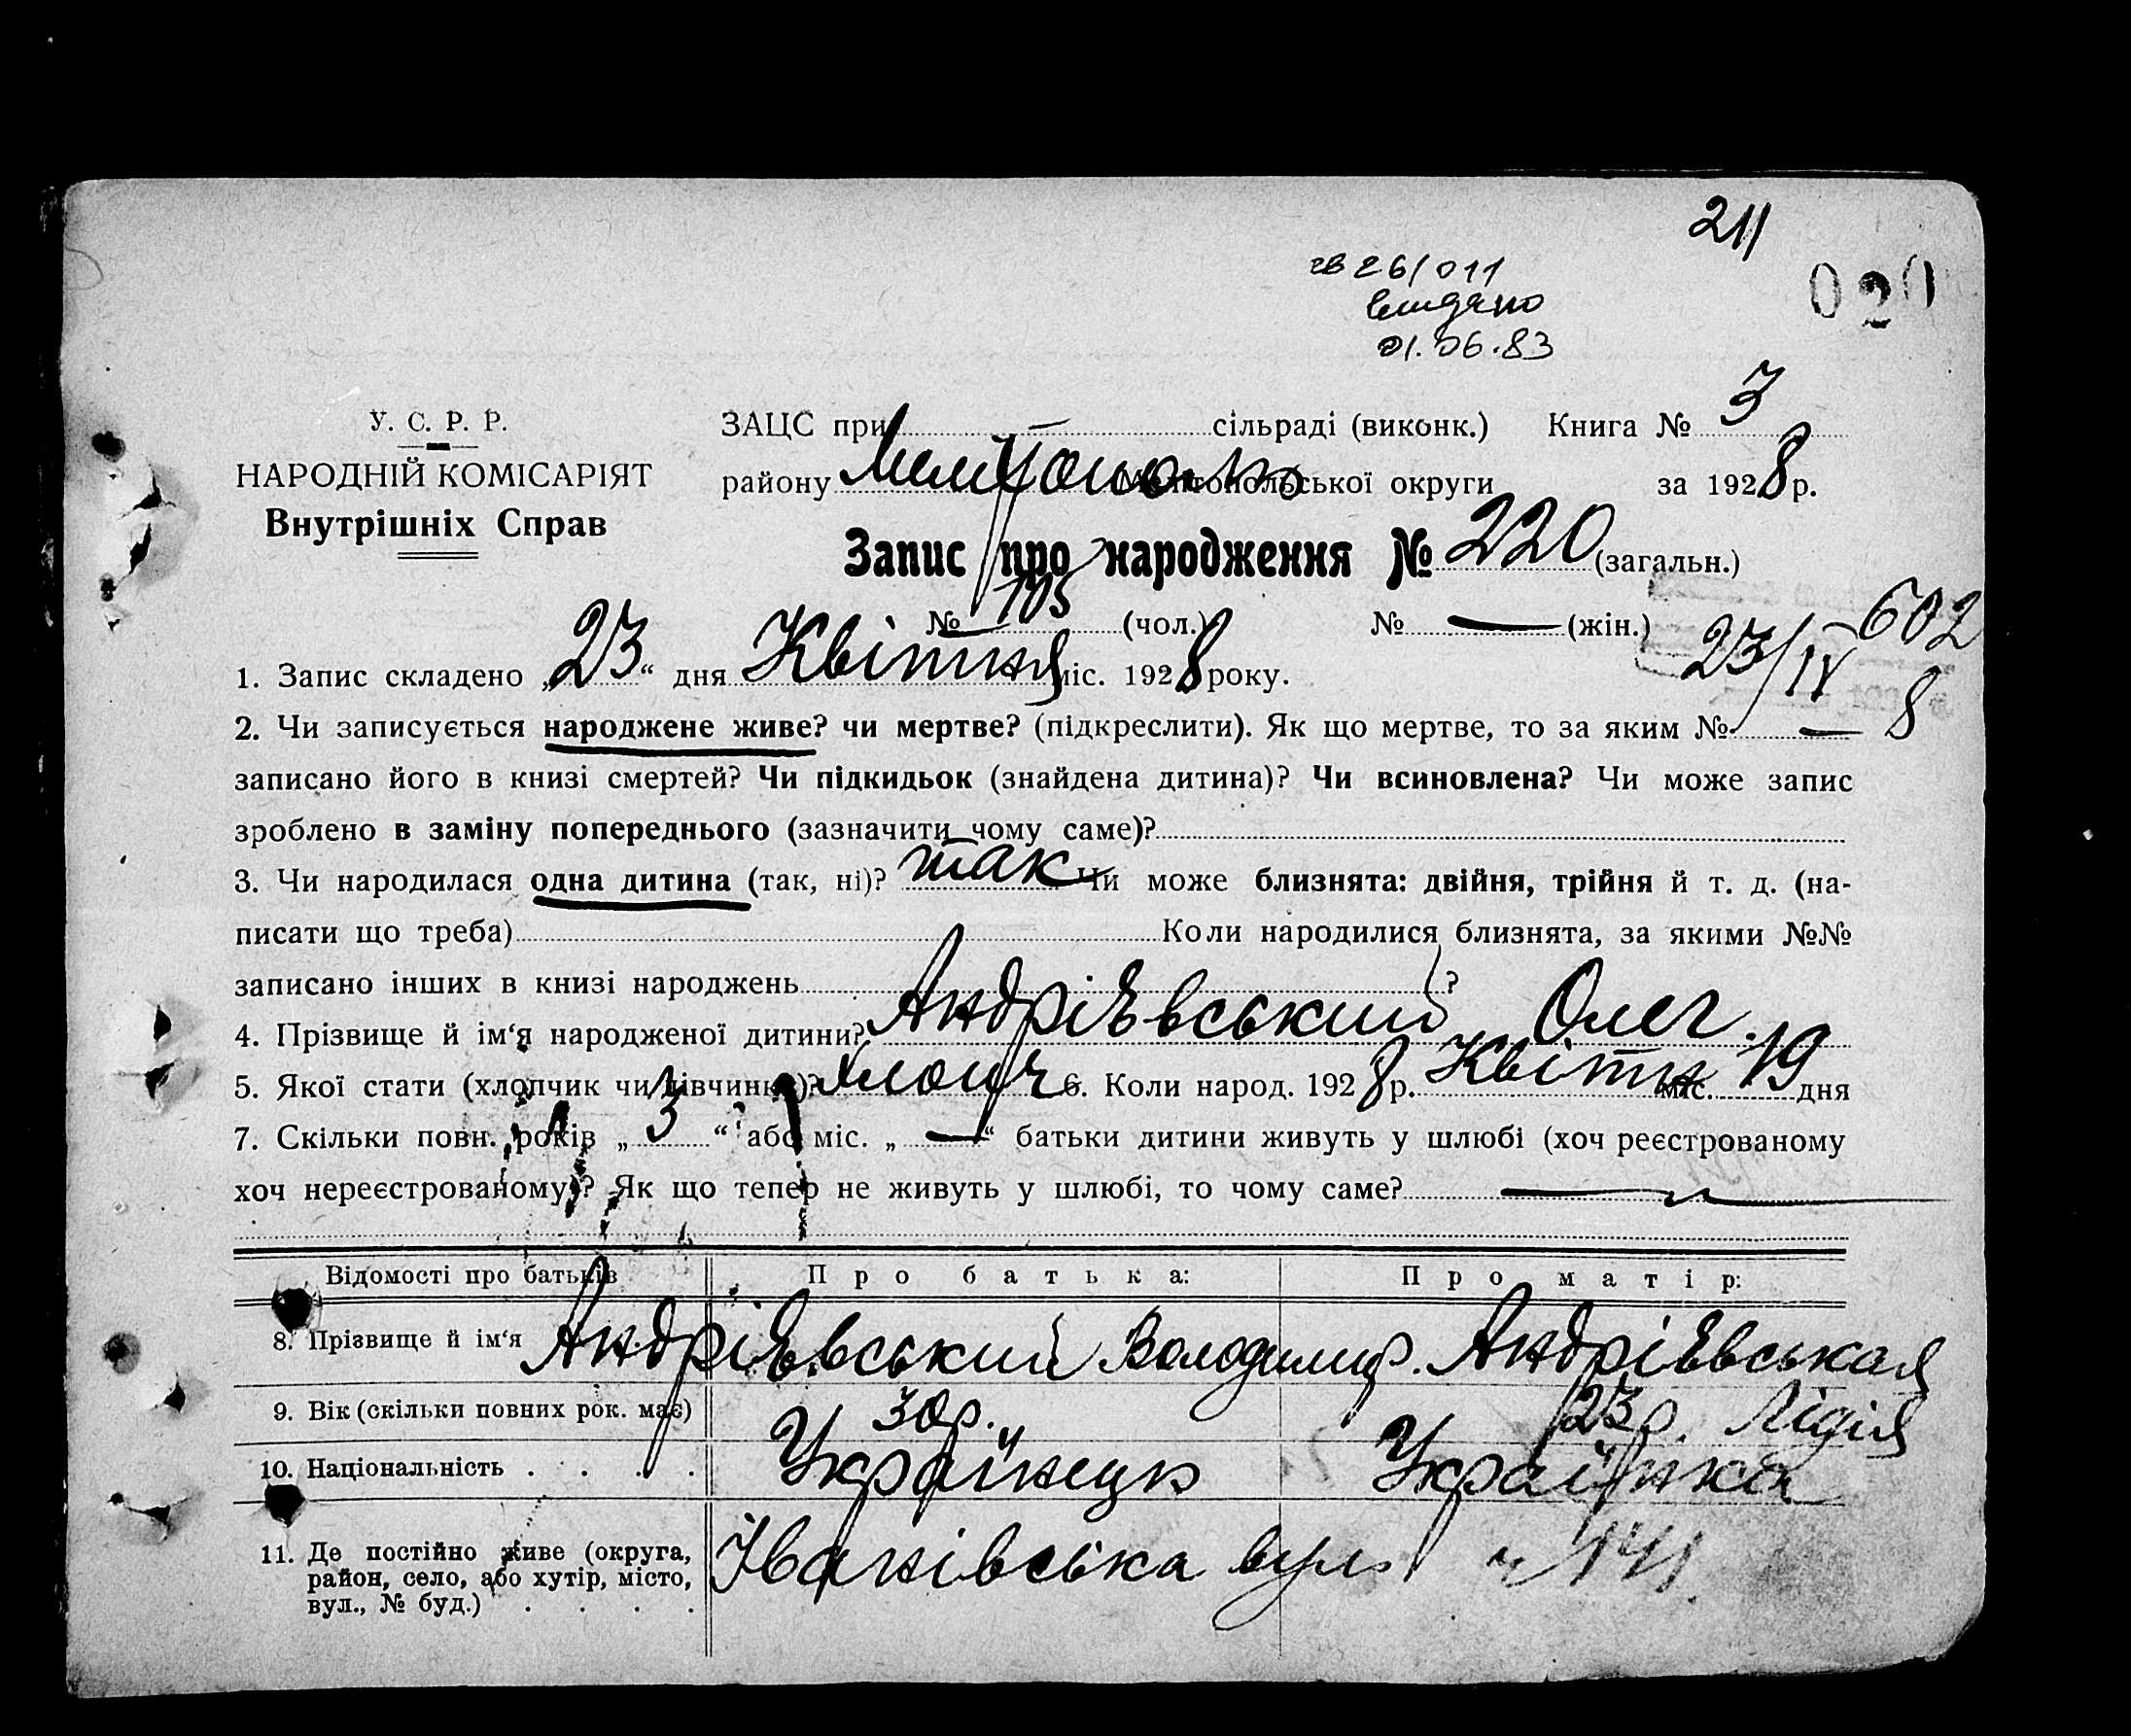 211
020
26/011
видано
01.06.83
У. С. Р. Р.
НАРОДНІЙ КОМІСАРІЯТ
Внутрішніх Справ
ЗАЦС при — сільраді (виконк.) Книга № 3
району Мелітополь Мелітопольської округи за 1928 р.
Запис про народження № 220 (загальн.)
№ 105 (чол.) № — (жін.)
602
23/IV 8
1. Запис складено „23“ дня Квітня міс. 1928 року.
2. Чи записується народжене живе? чи мертве? (підкреслити). Як що мертве, то за яким № —
записано його в книзі смертей? Чи підкидьок (знайдена дитина)? Чи всиновлена? Чи може запис
зроблено в заміну попереднього (зазначити чому саме)?
3. Чи народилася одна дитина (так, ні)? так Чи може близнята: двійня, трійня й т. д. (на-
писати що треба) Коли народилися близнята, за якими №№
записано інших в книзі народжень ?
4. Прізвище й ім‘я народженої дитини? Андрієвський Олег.
5. Якої стати (хлопчик чи дівчинка)? хлопч 6. Коли народ. 1928 р. Квітн міс. 19 дня
7. Скільки повн. років „3“ або міс. „—“ батьки дитини живуть у шлюбі (хоч реєстрованому
хоч нереєстрованому)? Як що тепер не живуть у шлюбі, то чому саме? —
Відомості про батьків Про батька: Про матір:
8. Прізвище й ім‘я Андрієвський Володимир. Андрієвськая
9. Вік (скільки повних рок. має) 30 р. 23 р. Лідія
10. Національність . . . . Українець Українка
11. Де постійно живе (округа,
район, село, або хутір, місто,
вул., № буд.) . . . .
Іванівська вул. 141